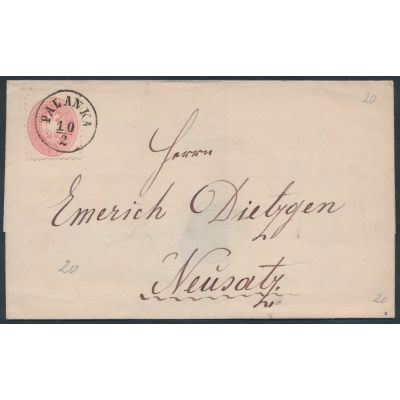 20
PALANKA
10
2
Herrn
Emerich Dietzgen
20
Neusatz.
20